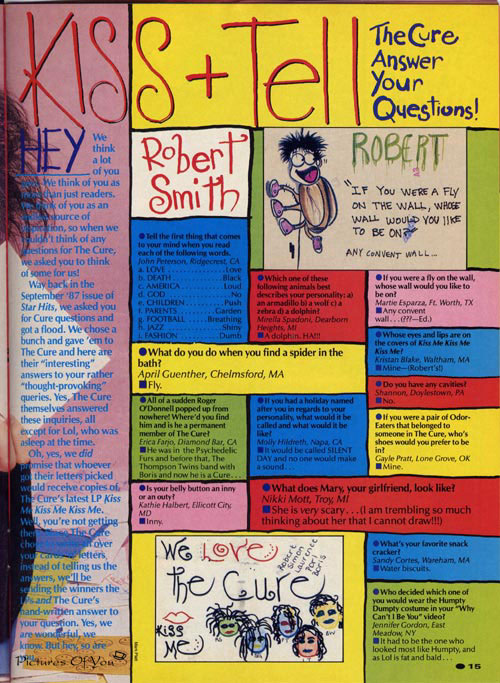 KISS + Tell
The Cure
Answer
Your
Questions!
HEY We
think
a lot
of you
We think of you as
than just readers.
think of you as an
source of
inspiration, so when we
couldn't think of any
questions for The Cure,
we asked you to think
of some for us!
Way back in the
September '87 issue of
Star Hits, we asked you
for Cure questions and
got a flood. We chose a
bunch and gave 'em to
The Cure and here are
their "interesting"
answers to your rather
"thought-provoking"
queries. Yes, The Cure
themselves answered
these inquiries, all
except for Lol, who was
asleep at the time.
Oh, yes, we did
promise that whoever
got their letters picked
would receive copies of
The Cure's latest LP Kiss
Me Kiss Me Kiss Me.
Well, you're not getting
them. The Cure
over
your letters,
instead of telling us the
answers, we'll be
sending the winners the
LPs and The Cure's
hand-written answer to
your question. Yes, we
are wonderful, we
know. But hey, so are
Pictures Of You
Robert
Smith
ROBERT
"IF YOU WERE A FLY
ON THE WALL, WHOSE
WALL WOULD YOU LIKE
TO BE ON?
ANY CONVENT WALL...
Tell the first thing that comes
to your mind when you read
each of the following words.
John Peterson, Ridgecrest, CA
a. LOVE Love
b. DEATH Black
c. AMERICA Loud
d. GOD No
e. CHILDREN Push
f. PARENTS Garden
g. FOOTBALL Breathing
h. JAZZ Shiny
i. FASHION Dumb
Which one of these
following animals best
describes your personality: a)
an armadillo b) a wolf c) a
zebra d) a dolphin?
Mirella Spadoni, Dearborn
Heights, MI
A dolphin. HA!!!
If you were a fly on the wall,
whose wall would you like to
be on?
Martie Esparza, Ft. Worth, TX
Any convent
wall . . . (???—Ed.)
Whose eyes and lips are on
the covers of Kiss Me Kiss Me
Kiss Me?
Kristan Blake, Waltham, MA
Mine—(Robert's!)
What do you do when you find a spider in the
bath?
April Guenther, Chelmsford, MA
Fly.
Do you have any cavities?
Shannon, Doylestown, PA
No.
All of a sudden Roger
O'Donnell popped up from
nowhere! Where'd you find
him and is he a permanent
member of The Cure?
Erica Farjo, Diamond Bar, CA
He was in the Psychedelic
Furs and before that, The
Thompson Twins band with
Boris and now he is a Cure. . .
If you had a holiday named
after you in regards to your
personality, what would it be
called and what would it be
like?
Molly Hildreth, Napa, CA
It would be called SILENT
DAY and no one would make
a sound. . .
If you were a pair of Odor-
Eaters that belonged to
someone in The Cure, who's
shoes would you prefer to be
in?
Gayle Pratt, Lone Grove, OK
Mine.
Is your belly button an inny
or an outy?
Kathie Halbert, Ellicott City,
MD
Inny.
What does Mary, your girlfriend, look like?
Nikki Mott, Troy, MI
She is very scary. . .(I am trembling so much
thinking about her that I cannot draw!!!)
We Love
the Cure
Robert
Simon
Laurence
Porl
Boris
KISS
ME
What's your favorite snack
cracker?
Sandy Cortes, Wareham, MA
Water biscuits.
Who decided which one of
you would wear the Humpty
Dumpty costume in your "Why
Can't I Be You" video?
Jennifer Gordon, East
Meadow, NY
It had to be the one who
looked most like Humpty, and
as Lol is fat and bald . . .
15